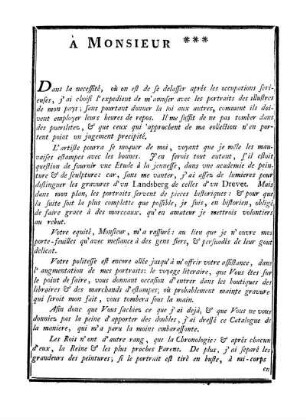 À MONSIEUR ***
Dans la necessité, où on est de se delasser après les occupations serieuses,
j'ai choisi l'expedient de m'amuser avec les portraits des illustres
de mon pays; sans pourtant donner la loi aux autres, comment ils doivent
employer leurs heures de repos. Il me suffit de ne pas tomber dans
des puerilités, & que ceux qui approuchent de ma collection n'en portent
point un jugement precipité.
L'artiste pourra se moquer de moi, voyant que je mêle les mauvaises
estampes avec les bonnes. J'en ferois tout autant, s'il étoit
question de fournir une Etude à la jeunesse, dans une academie de peinture
& de sculpture: car, sans me vanter, j'ai assés de lumieres pour
distinguer les gravures d'un Landsberg de celles d'un Drevet. Mais
dans mon plan, les portraits servent de pieces historiques; & pour que
la suite soit la plus complette que possible, je suis, en historien, obligé
de faire grace à des morceaux, qu'en amateur je mettrois volontiers
au rebut.
Votre equité, Monsieur, m'a rassuré: au lieu que je n'ouvre mes
porte-feuilles qu'avec mefiance à des gens fiers, & persuadés de leur gout
delicat.
Votre politesse est encore allée jusqu'à m'offrir votre assistance, dans
l'augmentation de mes portraits: le voyage literaire, que Vous êtes sur
le point de faire, vous donnant occasion d'entrer dans les boutiques des
libraires & des marchands d'estampes, où probablement mainte gravure
qui seroit mon fait, vous tombera sous la main.
Afin donc que Vous sachiés ce que j'ai déjà, & que Vous ne vous
donniés pas la peine d'apporter des doubles, j'ai dressé ce Catalogue de
la maniere, qui m'a paru la moins embarassante.
Les Rois n'ont d'autre rang, que la Chronologie: & après chacun
d'eux, la Reine & les plus proches Parens. De plus, j'ai separé les
grandeurs des peintures; si le portrait est tiré en buste, à mi-corps
en